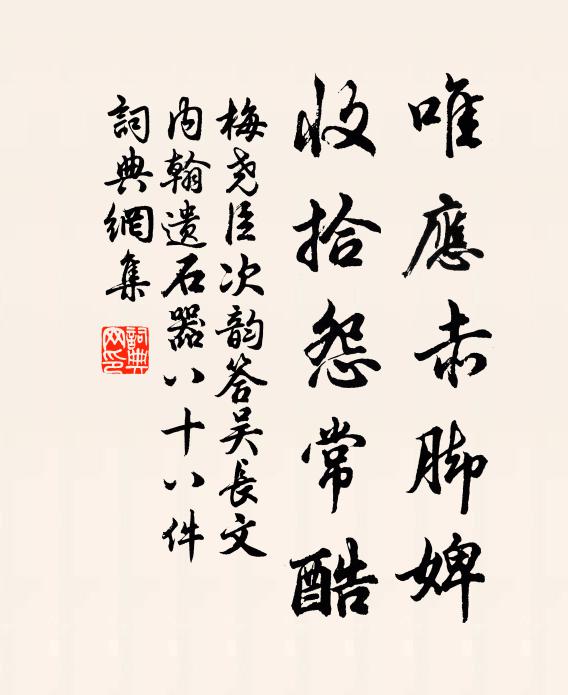 唯應赤脚婢
收拾怨常酷
梅尧臣次韵答吴長文
内翰遗石器八十八件
詞典網集
詞典
网印